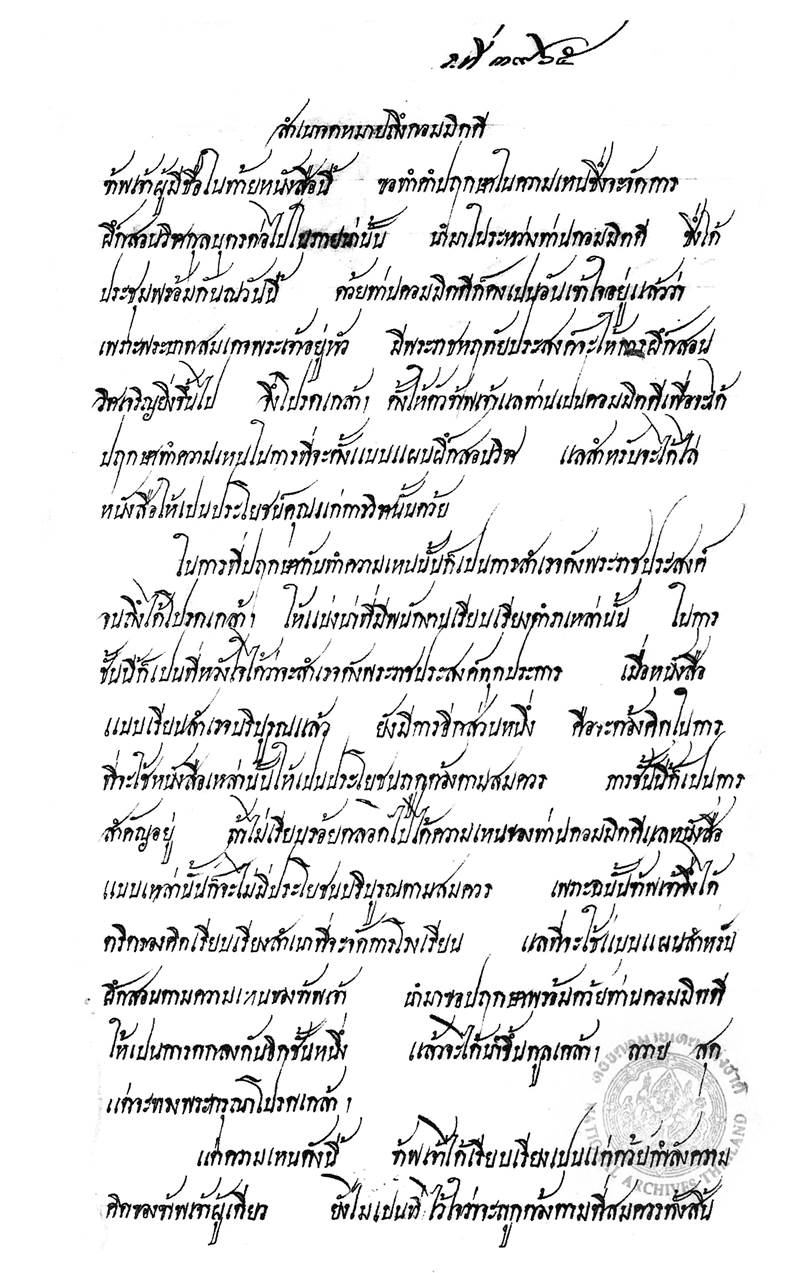 ว.ที่ ๓๙๖๕
สำเนาจดหมายถึงกอมมิตตี
ข้าพเจ้าผู้มีชื่อในท้ายหนังสือนี้ ขอทำคำปฤกษาในความเหนซึ่งจะจัดการ
ฝึกสอนวิชากุลบุตรต่อไปในภายน่านั้น นำมาในระหว่างท่านกอมมิตตี ซึ่งได้
ประชุมพร้อมกันณวันนี้ ด้วยท่านกอมมิตตีก็คงเปนอันเข้าใจอยู่แล้วว่า
เพราะพระบาทสมเดจพระเจ้าอยู่หัว มีพระราชหฤทัยประสงค์จะให้การฝึกสอน
วิชาเจริญยิ่งขึ้นไป จึงโปรดเกล้าฯ ตั้งให้ตัวข้าพเจ้าแลท่านเปนกอมมิตตีเพื่อจะได้
ปฤกษาทำความเหนในการที่จะตั้งแบบแผนฝึกสอนวิชา แลสำหรับจะได้ไล่
หนังสือให้เปนประโยชน์คุณแก่การวิชานั้นด้วย
ในการที่ปฤกษากันทำความเหนนั้นก็เปนการสำเรจดังพระราชประสงค์
จนถึงได้โปรดเกล้าฯ ให้แบ่งน่าที่มีพนักงานเรียบเรียงตำราเหล่านั้น ในการ
ชั้นนี้ก็เปนที่หวังใจได้ว่าจะสำเรจดังพระราชประสงค์ทุกประการ เมื่อหนังสือ
แบบเรียนสำเรจบริบูรณแล้ว ยังมีการอีกส่วนหนึ่ง คือจะต้องคิดในการ
ที่จะใช้หนังสือเหล่านั้นให้เปนประโยชนถูกต้องตามสมควร การชั้นนี้ก็เปนการ
สำคัญอยู่ ถ้าไม่เรียบร้อยตลอดไปได้ความเหนของท่านกอมมิตตีแลหนังสือ
แบบเหล่านั้นก็จะไม่มีประโยชนบริบูรณตามสมควร เพราะฉนั้นข้าพเจ้าจึงได้
ตริตรองคิดเรียบเรียงสำเนาที่จะจัดการโรงเรียน แลที่จะใช้แบบแผนสำหรับ
ฝึกสอนตามความเหนของข้าพเจ้า นำมาขอปฤกษาพร้อมด้วยท่านกอมมิตตี
ให้เปนการตกลงกันอีกชั้นหนึ่ง แล้วจึ่งจะได้นำขึ้นทูลเกล้าฯ ถวาย สุด
แต่จะทรงพระกรุณาโปรดเกล้าฯ
แต่ความเหนดังนี้ ข้าพเจ้าได้เรียบเรียงเปนแต่ด้วยกำลังความ
คิดของข้าพเจ้าผู้เดียว ยังไม่เปนที่ไว้ใจว่าจะถูกต้องตามที่สมควรทั้งสิ้น
หอจดหมายเหตุแห่งชาติ
NATIONAL ARCHIVES THAILAND